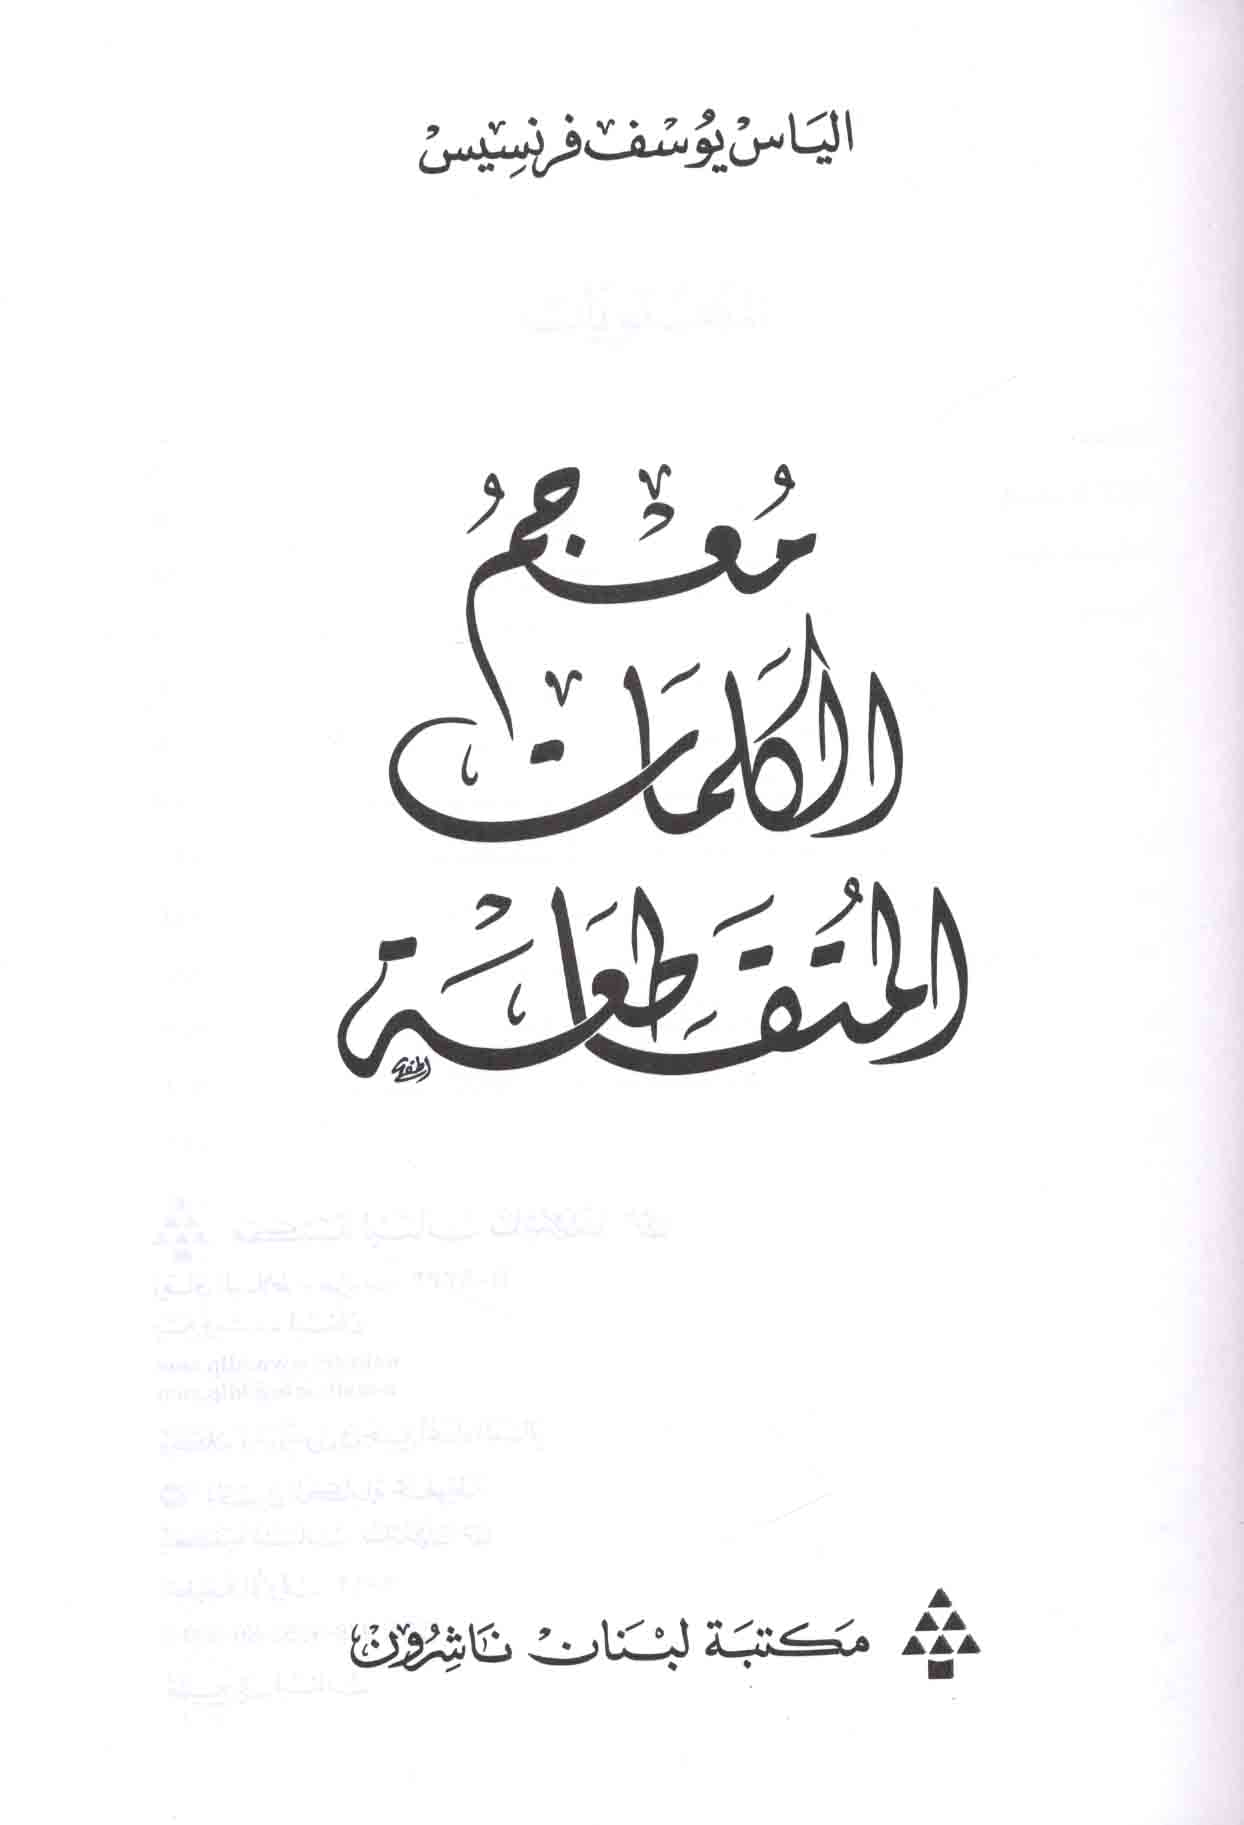 الياس يوسف فرنسيس
معجم
الكلمات
المتقاطعة
مكتبة لبنان ناشرون